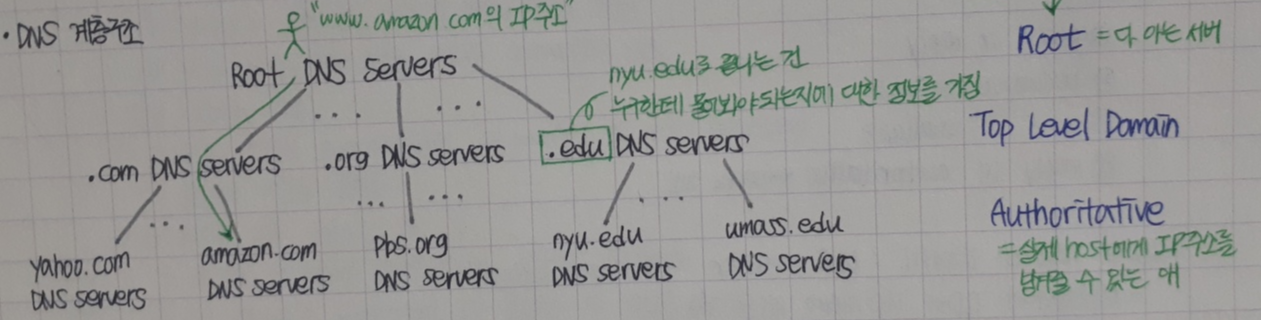 · DNS 계층구조
"www.amazon.com의 IP주소"
Root DNS servers
nyu.edu로 끝나는 건
누구한테 물어봐야되는지에 대한 정보를 가짐
Root = 다 아는 서버
... ...
.com DNS servers
.org DNS servers
.edu DNS servers
Top Level Domain
... ... ... ...
yahoo.com
DNS servers
amazon.com
DNS servers
pbs.org
DNS servers
nyu.edu
DNS servers
umass.edu
DNS servers
Authoritative
= 실제 host에게 IP주소를
넘겨줄 수 있는 애